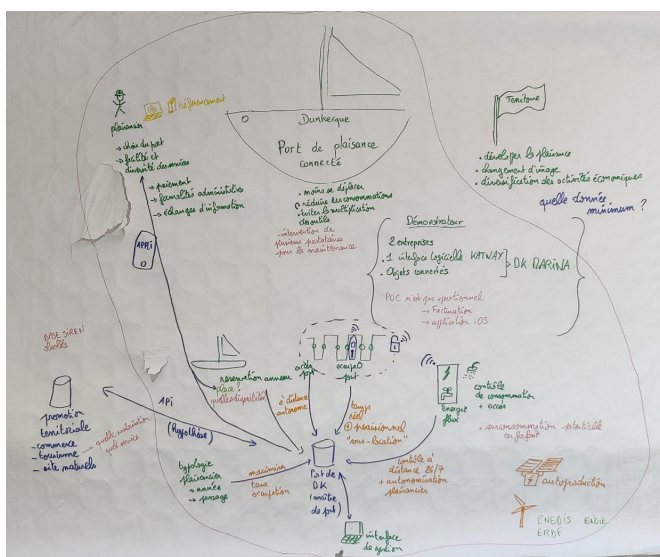 plaisancier
référencement
→ choix du port
→ facilité et
diversité des services
→ paiement
→ formalités administratives
→ échanges d'information
APPLi
Dunkerque
Port de plaisance
connecté
• moins se déplacer
• réduire les consommations
• éviter la multiplication
des outils
- intervention de
plusieurs prestataires
pour la maintenance
Territoire
• développer la plaisance
• changement d'image
• diversification des activités économiques
quelle donnée
minimum ?
Démonstrateur
2 entreprises
• 1 interface logicielle
• Objets connectés
DK MARINA
POC n'est pas opérationnel
→ Facturation
→ application iOS
BASE SIREN
promotion
territoriale
- commerce
- tourisme
- site naturels
API
(hypothèse)
→ quelle valorisation
quel service
reservation anneau
place ?
quelles disponibilités
accès
port
à distance
autonome
temps
réel
+ prévisionnel
"sous-location"
énergie
contrôle
de consommation
+ accès
• surconsommation potentielle
en forfait
typologie
plaisanciers
→ année
→ passage
maximiser
taux
occupation
Port de
DK
(maître
de port)
contrôle à
distance 24/7
+ autonomisation
plaisanciers
interface
de gestion
autoproduction
ENEDIS ENGIE
ERDF